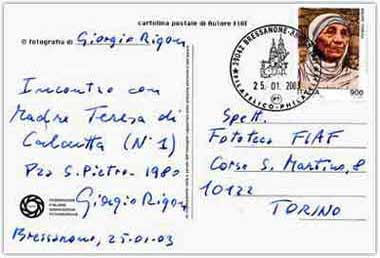 cartolina postale di Autore FIAF
© fotografia di Giorgio Rigon
39042 BRESSANONE
25.01.2003
FILATELICO-PHILATEL
900
Incontro con
Madre Teresa di
Calcutta (N°1)
Pza S. Pietro - 1980
Giorgio Rigon
Bressanone, 25-01-03
FEDERAZIONE
ITALIANA
ASSOCIAZIONI
FOTOGRAFICHE
Spett.
Fototeca FIAF
Corso S. Martino, 8
10122
TORINO